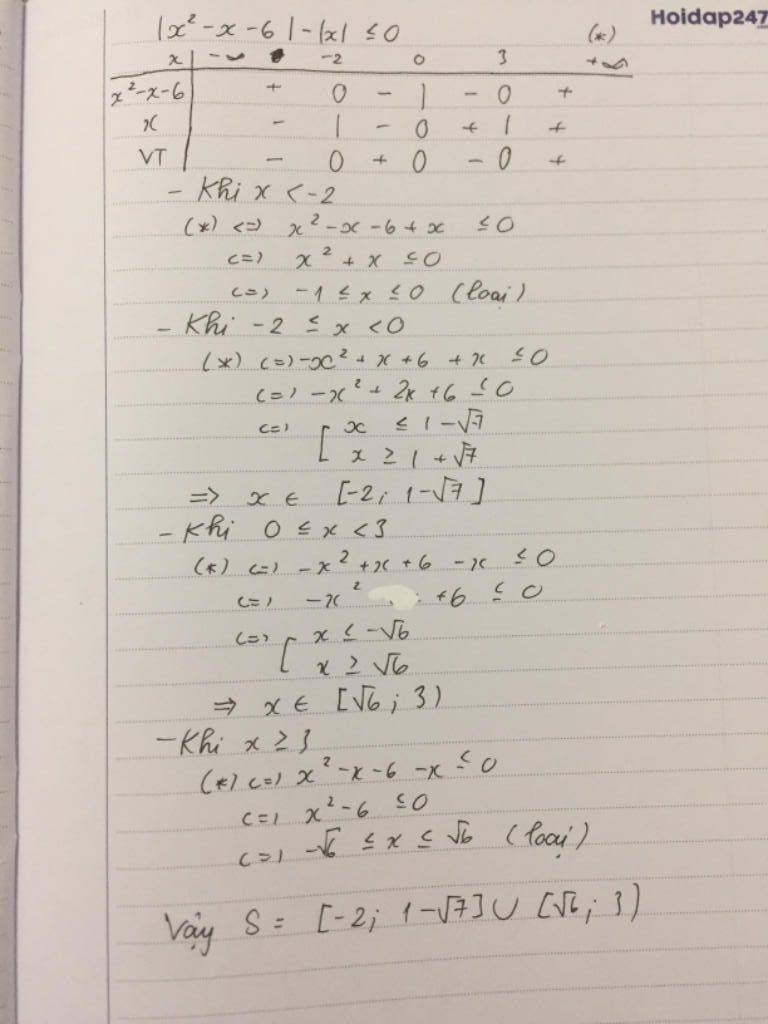 Hoidap247
|x² - x - 6| - |x| ≤ 0 (*)
x | -∞ -2 0 3 +∞
x² - x - 6 | + 0 - | - 0 +
x | - | - 0 + | +
VT | - 0 + 0 - 0 +
- Khi x < -2
(*) <=> x² - x - 6 + x ≤ 0
<=> x² + x ≤ 0
<=> -1 ≤ x ≤ 0 (loại)
- Khi -2 ≤ x < 0
(*) <=> -x² + x + 6 + x ≤ 0
<=> -x² + 2x + 6 ≤ 0
<=> [ x ≤ 1 - √7
x ≥ 1 + √7
=> x ∈ [-2; 1-√7]
- Khi 0 ≤ x < 3
(*) <=> -x² + x + 6 - x ≤ 0
<=> -x² + 6 ≤ 0
<=> [ x ≤ -√6
x ≥ √6
=> x ∈ [√6; 3)
- Khi x ≥ 3
(*) <=> x² - x - 6 - x ≤ 0
<=> x² - 6 ≤ 0
<=> -√6 ≤ x ≤ √6 (loại)
Vậy S = [-2; 1-√7] ∪ [√6; 3)